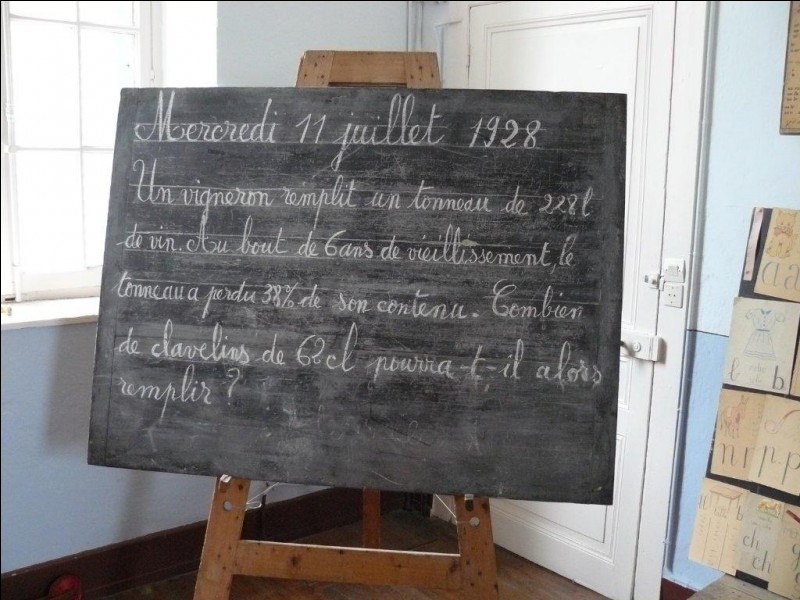 Mercredi 11 juillet 1928
Un vigneron remplit un tonneau de 228 l
de vin. Au bout de 6 ans de vieillissement, le
tonneau a perdu 38% de son contenu. Combien
de clavelins de 62 cl pourra-t-il alors
remplir ?
aa
l b
n r
ch
ch